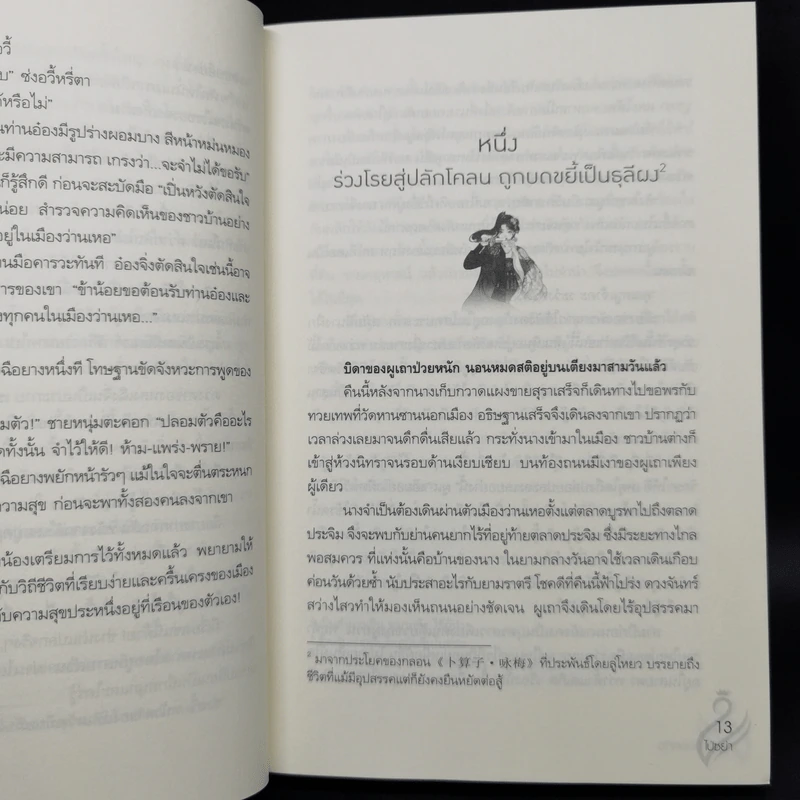 อวี้
บ” ซ่งอวี้หรี่ตา
ด้หรือไม่”
นท่านอ๋องมีรูปร่างผอมบาง สีหน้าหม่นหมอง
ะมีความสามารถ เกรงว่า...จะจำไม่ได้ขอรับ”
ก็รู้สึกดี ก่อนจะสะบัดมือ “เป็นหวังตัดสินใจ
น่อย สำรวจความคิดเห็นของชาวบ้านอย่าง
อยู่ในเมืองว่านเหอ”
านมือคารวะทันที อ๋องจิ่งตัดสินใจเช่นนี้อาจ
การของเขา “ข้าน้อยขอต้อนรับท่านอ๋องและ
งทุกคนในเมืองว่านเหอ...”
ฉีอย่างหนึ่งที โทษฐานขัดจังหวะการพูดของ
มตัว!” ชายหนุ่มตะคอก “ปลอมตัวคืออะไร
ดทั้งนั้น จำไว้ให้ดี! ห้าม-แพร่ง-พราย!”
ฉีอย่างพยักหน้ารัวๆ แม้ในใจจะตื่นตระหนก
ความสุข ก่อนจะพาทั้งสองคนลงจากเขา
น้องเตรียมการไว้ทั้งหมดแล้ว พยายามให้
กับวิถีชีวิตที่เรียบง่ายและครื้นเครงของเมือง
ับความสุขประหนึ่งอยู่ที่เรือนของตัวเอง!
หนึ่ง
ร่วงโรยสู่ปลักโคลน ถูกบดขยี้เป็นธุลีผง²
บิดาของผูเถาป่วยหนัก นอนหมดสติอยู่บนเตียงมาสามวันแล้ว
คืนนี้หลังจากนางเก็บกวาดแผงขายสุราเสร็จก็เดินทางไปขอพรกับ
ทวยเทพที่วัดหานซานนอกเมือง อธิษฐานเสร็จจึงเดินลงจากเขา ปรากฏว่า
เวลาล่วงเลยมาจนดึกดื่นเสียแล้ว กระทั่งนางเข้ามาในเมือง ชาวบ้านต่างก็
เข้าสู่ห้วงนิทราจนรอบด้านเงียบเชียบ บนท้องถนนมีเงาของผูเถาเพียง
ผู้เดียว
นางจำเป็นต้องเดินผ่านตัวเมืองว่านเหอตั้งแต่ตลาดบูรพาไปถึงตลาด
ประจิม จึงจะพบกับย่านคนยากไร้ที่อยู่ท้ายตลาดประจิม ซึ่งมีระยะทางไกล
พอสมควร ที่แห่งนั้นคือบ้านของนาง ในยามกลางวันอาจใช้เวลาเดินเกือบ
ค่อนวันด้วยซ้ำ นับประสาอะไรกับยามราตรี โชคดีที่คืนนี้ฟ้าโปร่ง ดวงจันทร์
สว่างไสวทำให้มองเห็นถนนอย่างชัดเจน ผูเถาจึงเดินโดยไร้อุปสรรคมา
² มาจากประโยคของกลอน 《卜算子・咏梅》 ที่ประพันธ์โดยลู่โหยว บรรยายถึง
ชีวิตที่แม้มีอุปสรรคแต่ก็ยังคงยืนหยัดต่อสู้
13
โม่ซย่า